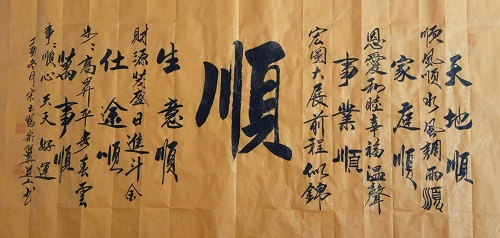 天地順
順風順水風調雨順
家庭順
恩愛和睦幸福温馨
事業順
宏圖大展前程似錦
順
生意順
財源茂盛日進斗金
仕途順
步〻高昇平步青雲
萬事順
事〻順心天天好運